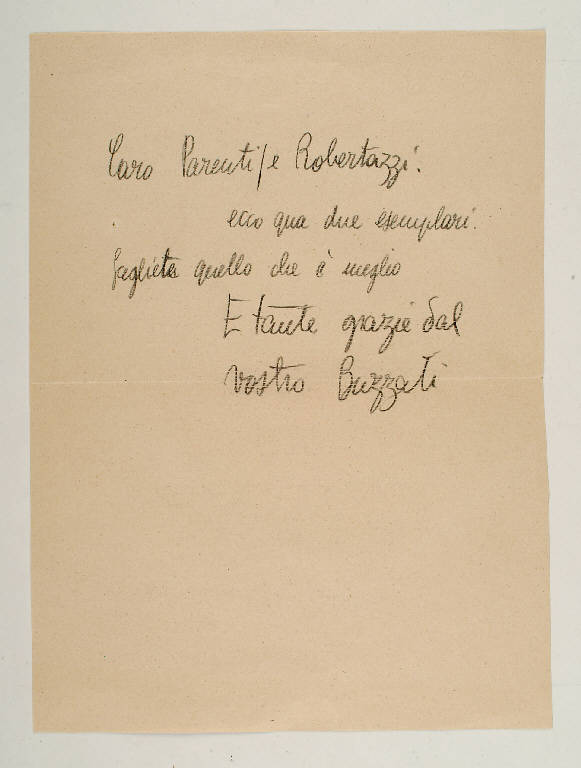 Caro Parenti/e Robertazzi:
ecco qua due esemplari.
quello che è meglio
E tante grazie dal
vostro Buzzati